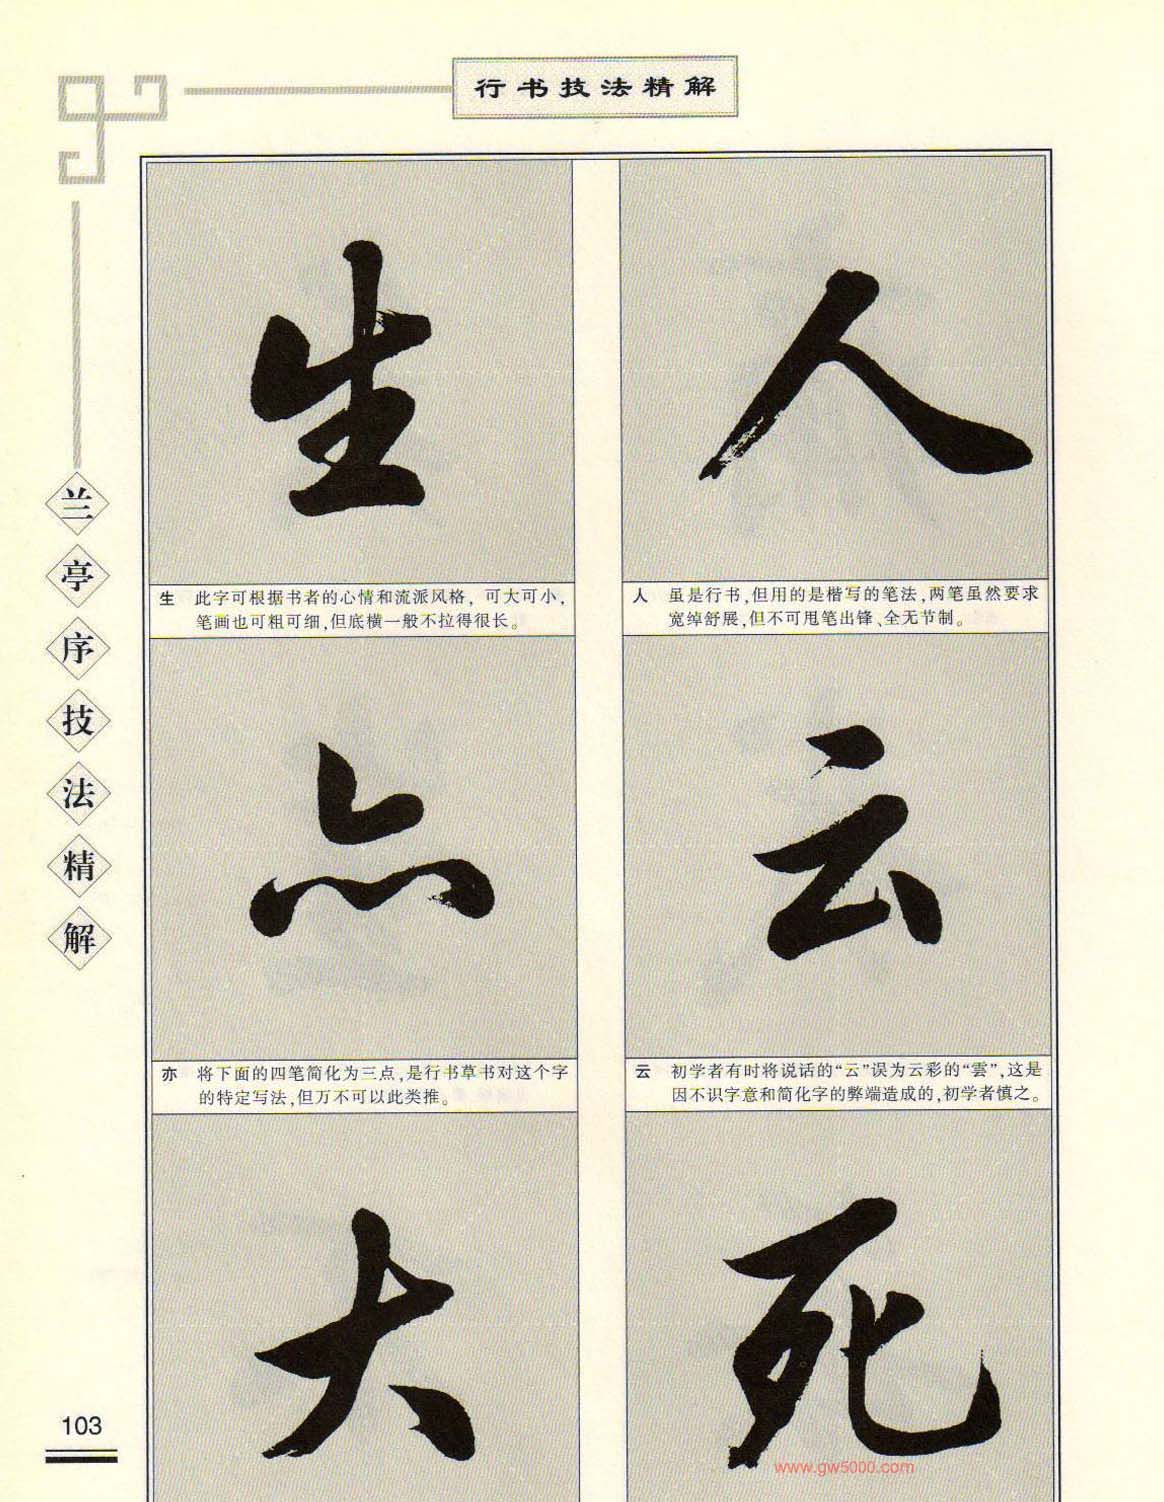 行书技法精解
兰亭序技法精解
生
人
生 此字可根据书者的心情和流派风格，可大可小，
笔画也可粗可细，但底横一般不拉得很长。
人 虽是行书，但用的是楷写的笔法，两笔虽然要求
宽绰舒展，但不可甩笔出锋、全无节制。
亦
云
亦 将下面的四笔简化为三点，是行书草书对这个字
的特定写法，但万不可以此类推。
云 初学者有时将说话的“云”误为云彩的“雲”，这是
因不识字意和简化字的弊端造成的，初学者慎之。
大
死
103
www.gw5000.com